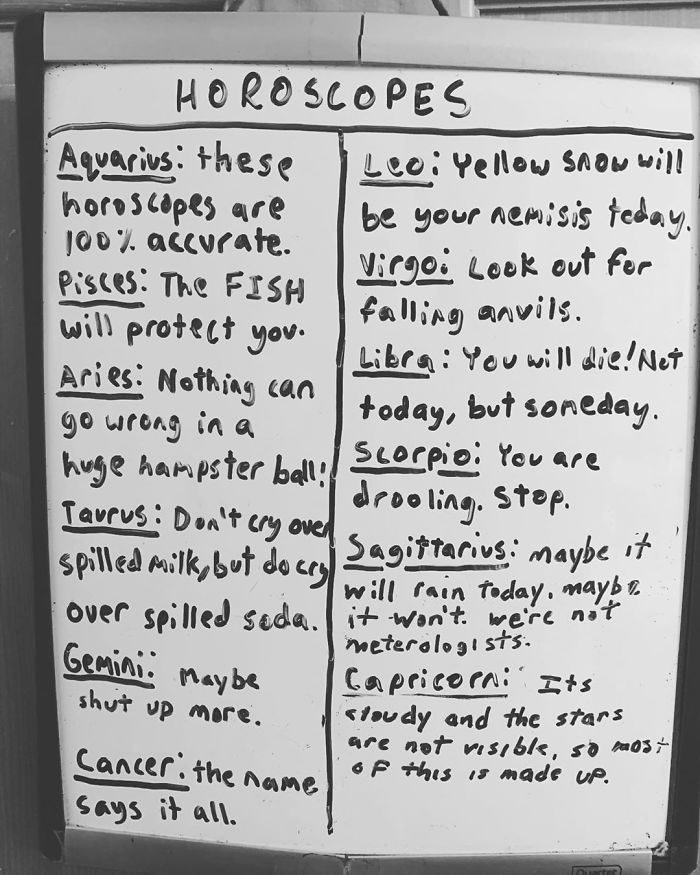 HOROSCOPES
Aquarius: these
horoscopes are
100% accurate.
Pisces: The FISH
will protect you.
Aries: Nothing can
go wrong in a
huge hampster ball!
Taurus: Don't cry over
spilled milk, but do cry
over spilled soda.
Gemini: maybe
shut up more.
Cancer: the name
says it all.
Leo: Yellow snow will
be your nemisis today.
Virgo: Look out for
falling anvils.
Libra: You will die! Not
today, but someday.
Scorpio: You are
drooling. Stop.
Sagittarius: maybe it
will rain today. maybe
it won't. we're not
meterologists.
Capricorn: Its
cloudy and the stars
are not visible, so most
of this is made up.
Quartet